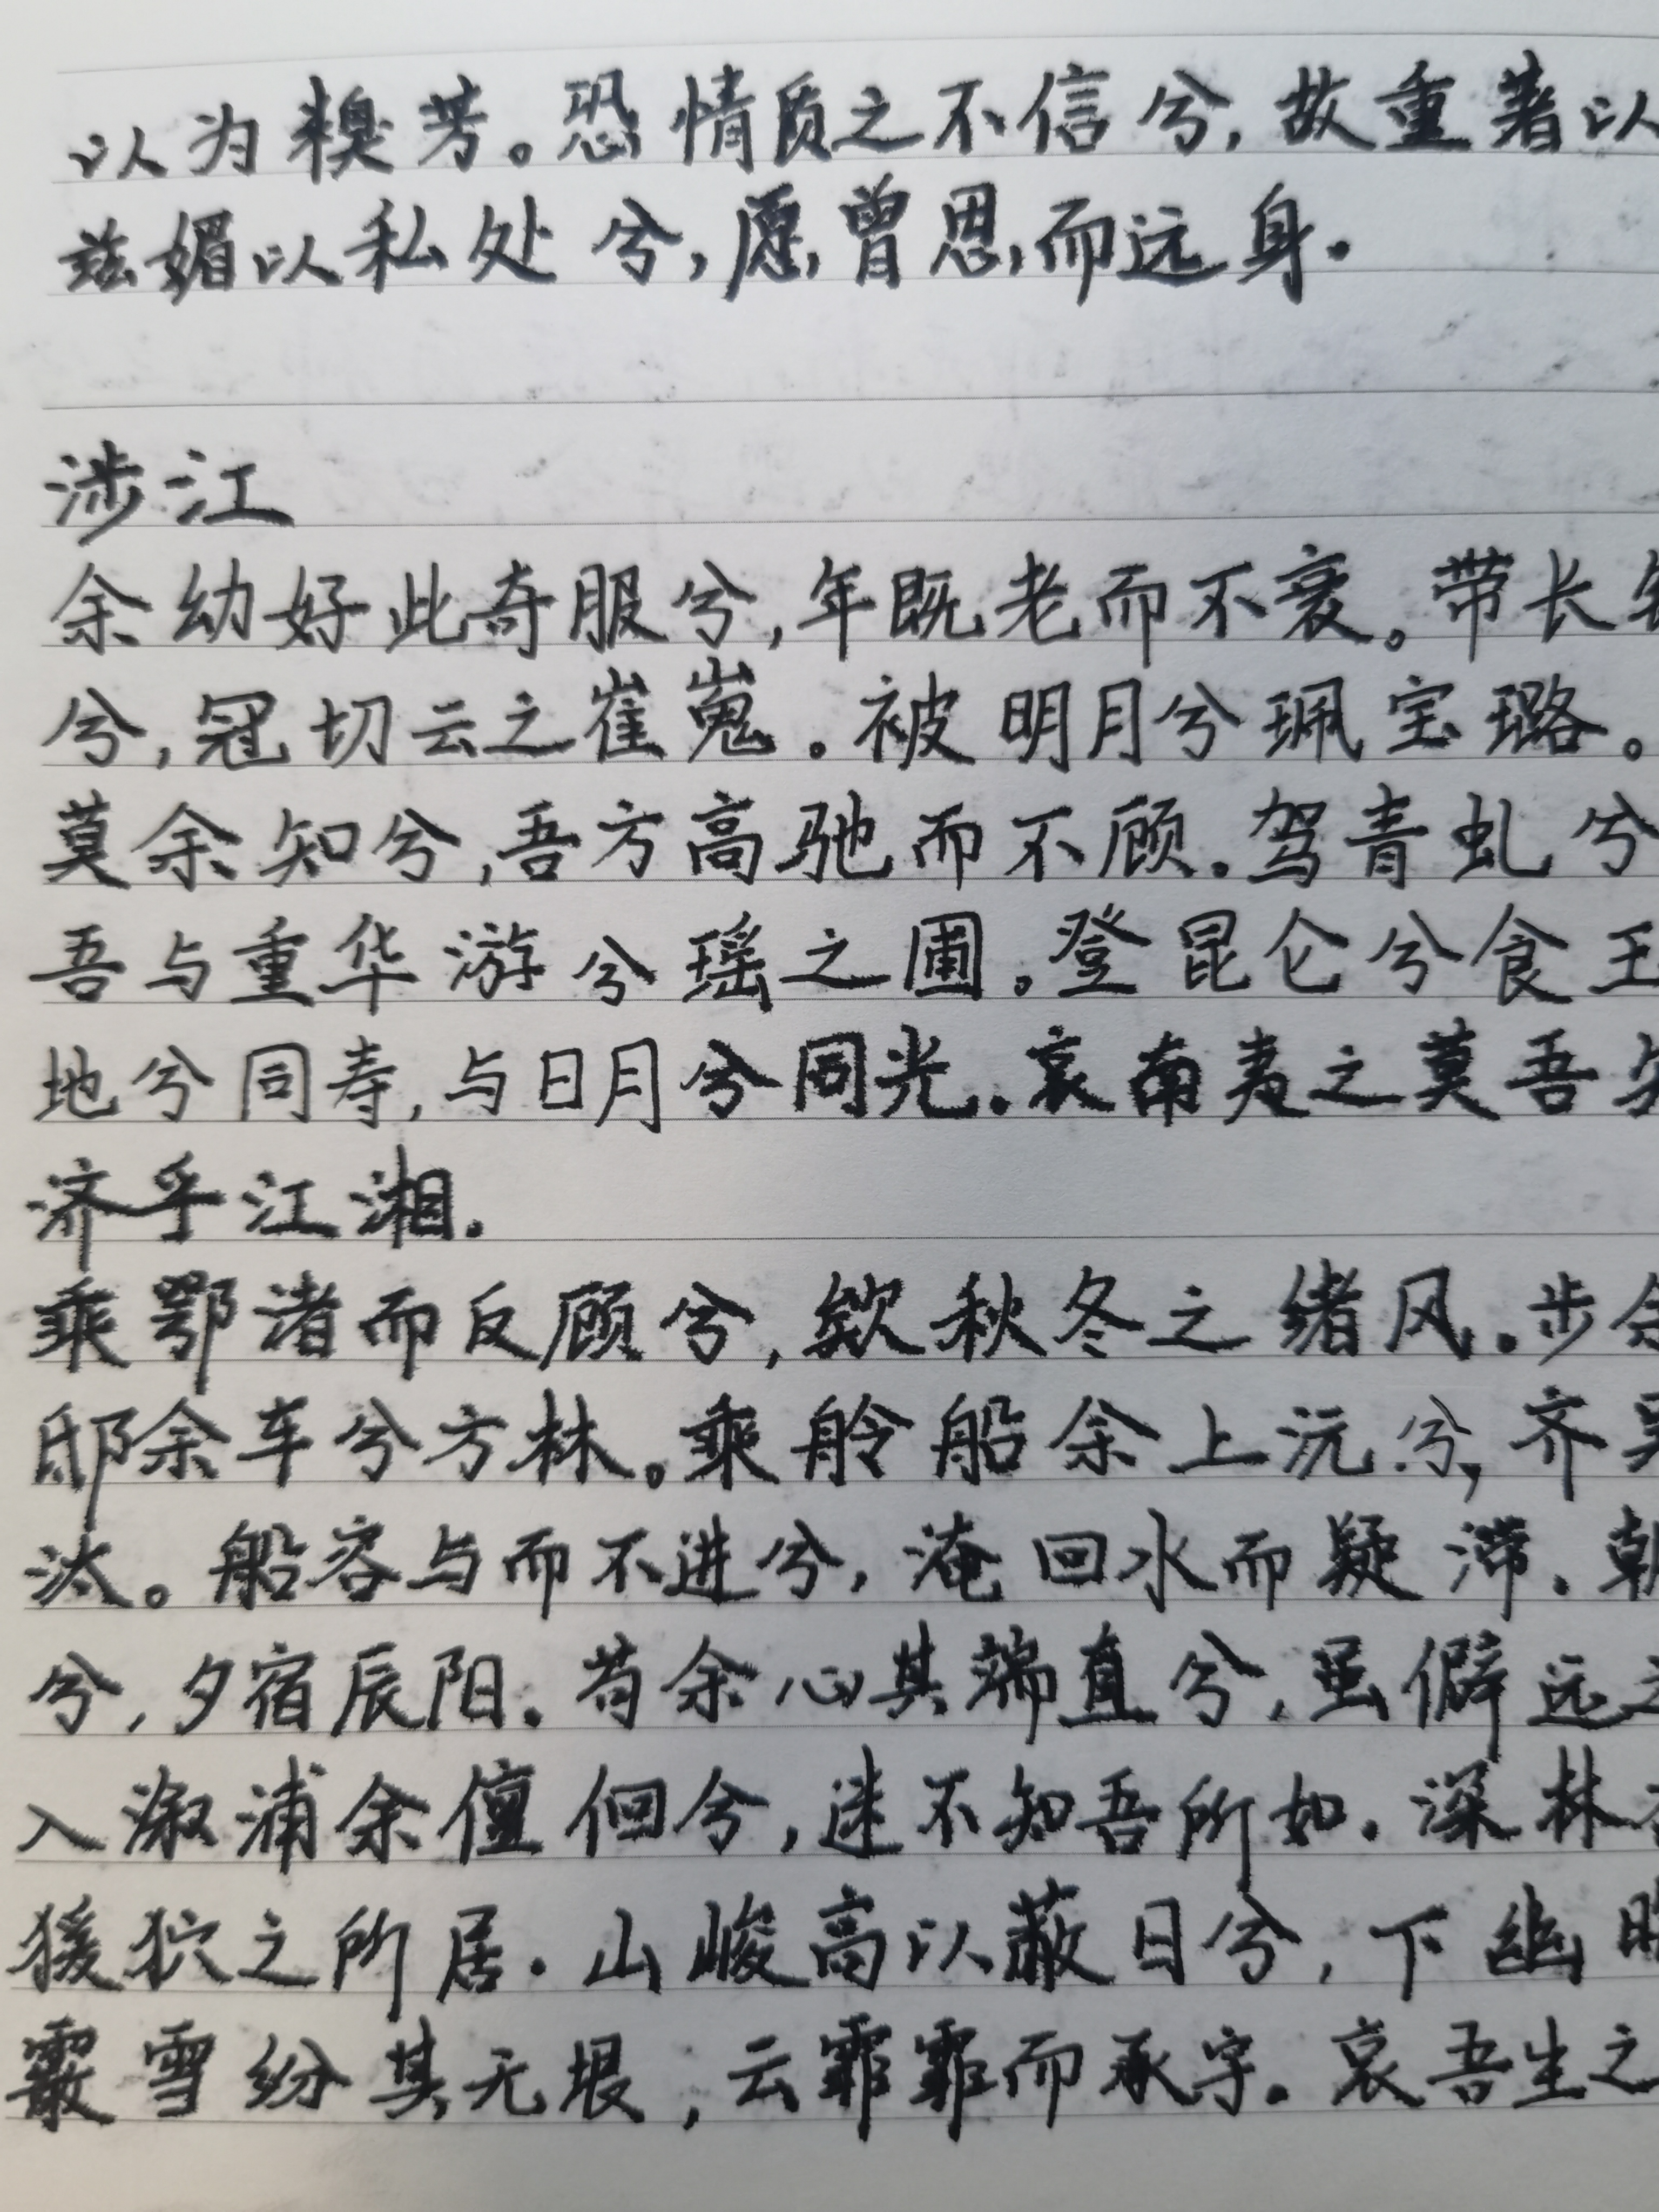 以为糗芳。恐情质之不信兮,故重著以
兹媚以私处兮,愿曾思而远身.
涉江
余幼好此奇服兮,年既老而不衰。带长
兮,冠切云之崔嵬。被明月兮珮宝璐。
莫余知兮,吾方高驰而不顾.驾青虬兮
吾与重华游兮瑶之圃。登昆仑兮食玉
地兮同寿,与日月兮同光.哀南夷之莫吾
济乎江湘.
乘鄂渚而反顾兮,欸秋冬之绪风.步余
邸余车兮方林。乘舲船余上沅兮,齐吴
汰。船容与而不进兮,淹回水而疑滞.朝
兮,夕宿辰阳.苟余心其端直兮,虽僻远之
入溆浦余儃佪兮,迷不知吾所如.深林
猨狖之所居.山峻高以蔽日兮,下幽晦
霰雪纷其无垠,云霏霏而承宇.哀吾生之